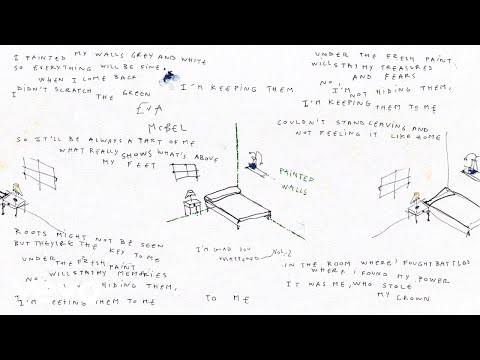 I PAINTED MY WALLS GREY AND WHITE
SO EVERYTHING WILL BE FINE.
WHEN I COME BACK
I DIDN'T SCRATCH THE GREEN
I'M KEEPING THEM
EVA
MCBEL
SO IT'LL BE ALWAYS A PART OF ME
WHAT REALLY SHOWS WHAT'S ABOVE
MY FEET
ROOTS MIGHT NOT BE SEEN
BUT THEY'RE THE KEY TO ME
UNDER THE FRESH PAINT
WILL STAY MY MEMORIES
NO, HIDING THEM,
I'M KEEPING THEM TO ME
TO ME
I'M GLAD YOU
VOL. 2
PAINTED
WALLS
UNDER THE FRESH PAINT
WILL STAY MY TREASURES
AND FEARS
NO, I'M NOT HIDING THEM,
I'M KEEPING THEM TO ME
COULDN'T STAND LEAVING AND
NOT FEELING IT LIKE HOME
IN THE ROOM WHERE I FOUGHT BATTLES
WHERE I FOUND MY POWER
IT WAS ME, WHO STOLE
MY CROWN